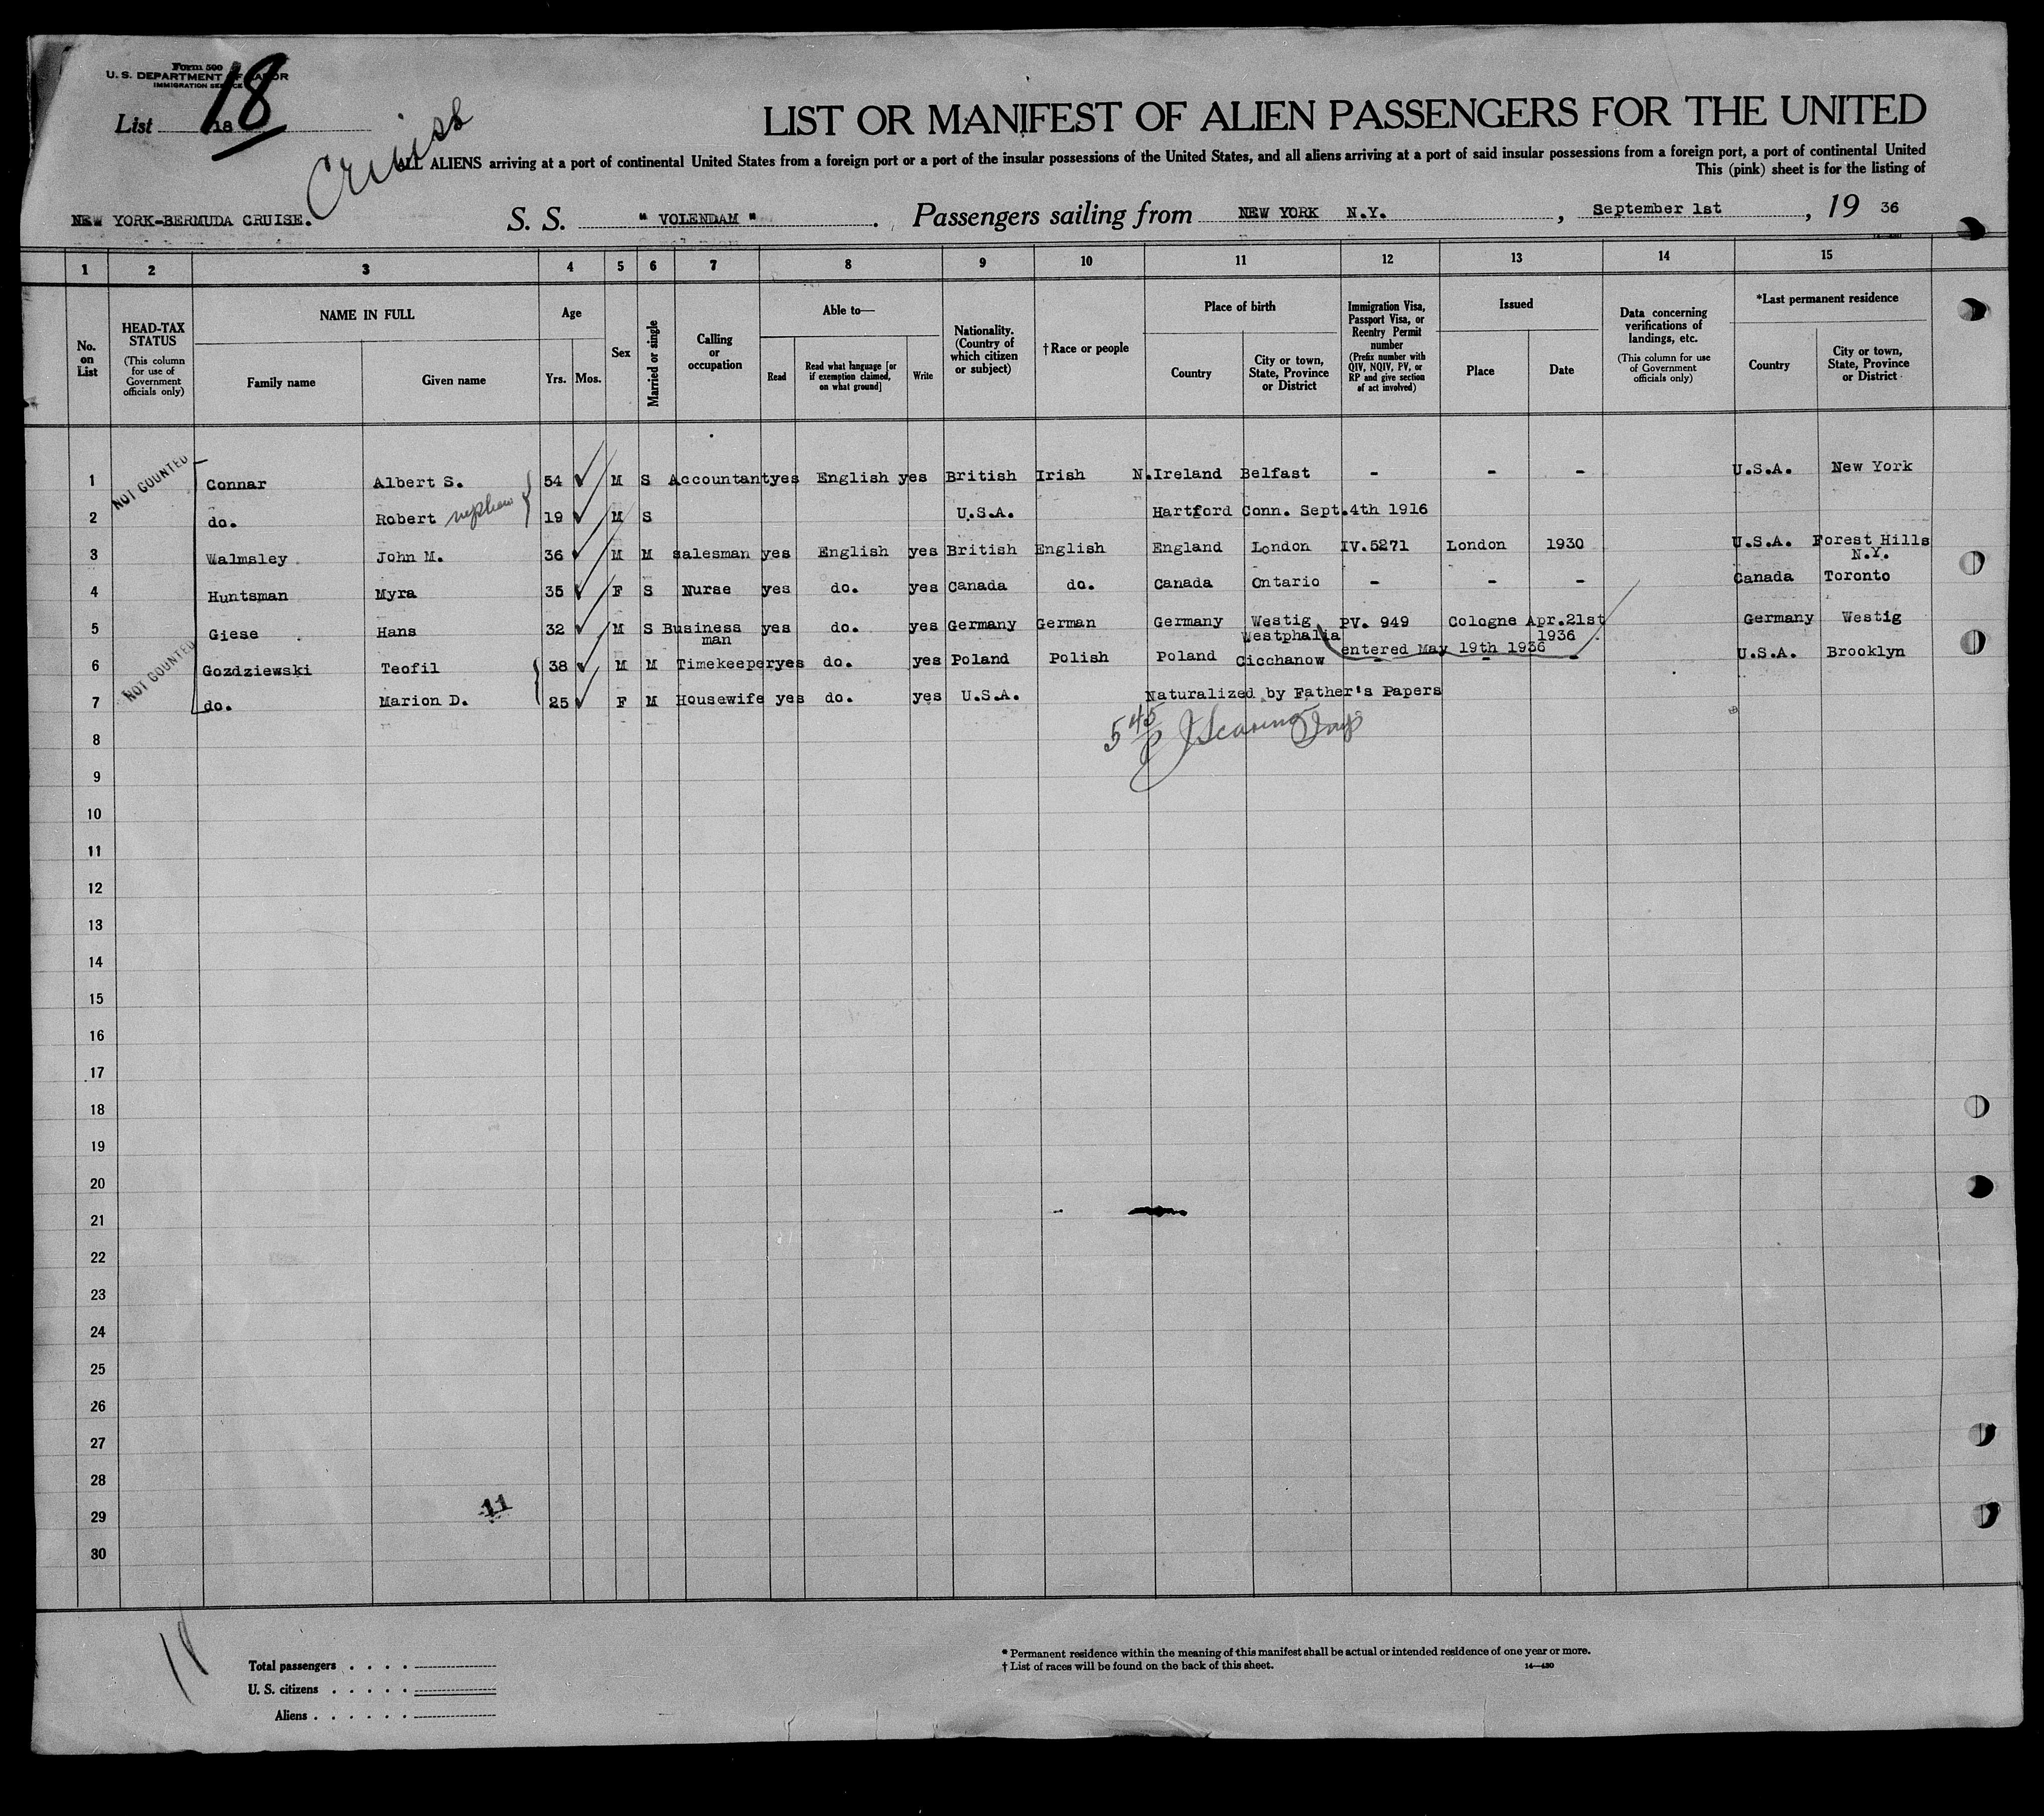 Form 500
U. S. DEPARTMENT OF LABOR
IMMIGRATION SERVICE
List 18
18
Cruise
LIST OR MANIFEST OF ALIEN PASSENGERS FOR THE UNITED
ALL ALIENS arriving at a port of continental United States from a foreign port or a port of the insular possessions of the United States, and all aliens arriving at a port of said insular possessions from a foreign port, a port of continental United
This (pink) sheet is for the listing of
NEW YORK-BERMUDA CRUISE. S. S. " VOLENDAM " . Passengers sailing from NEW YORK N.Y. , September 1st , 19 36
1 2 3 4 5 6 7 8 9 10 11 12 13 14 15
No. on List
HEAD-TAX STATUS (This column for use of Government officials only)
NAME IN FULL
Family name Given name
Age
Yrs. Mos.
Sex
Married or single
Calling or occupation
Able to—
Read
Read what language [or if exemption claimed, on what ground]
Write
Nationality. (Country of which citizen or subject)
† Race or people
Place of birth
Country
City or town, State, Province or District
Immigration Visa, Passport Visa, or Reentry Permit number (Prefix number with QIV, NQIV, PV, or RP and give section of act involved)
Issued
Place Date
Data concerning verifications of landings, etc. (This column for use of Government officials only)
*Last permanent residence
Country
City or town, State, Province or District
1 NOT COUNTED Connar Albert S. 54 M S Accountant yes English yes British Irish N.Ireland Belfast - - - U.S.A. New York
2 do. Robert nephew 19 M S U.S.A. Hartford Conn. Sept.4th 1916
3 Walmsley John M. 36 M M salesman yes English yes British English England London IV.5271 London 1930 U.S.A. Forest Hills
N.Y.
4 Huntsman Myra 35 F S Nurse yes do. yes Canada do. Canada Ontario - - - Canada Toronto
5 Giese Hans 32 M S Business yes do. yes Germany German Germany Westig PV. 949 Cologne Apr.21st Germany Westig
man Westphalia 1936
entered May 19th 1936
6 NOT COUNTED Gozdziewski Teofil 38 M M Timekeeper yes do. yes Poland Polish Poland Cicchanow - - - U.S.A. Brooklyn
7 do. Marion D. 25 F M Housewife yes do. yes U.S.A. Naturalized by Father's Papers
5 45
8
9
10
11
12
13
14
15
16
17
18
19
20
21
22
23
24
25
26
27
28
29
30
11
Total passengers . . . .
U. S. citizens . . . . .
Aliens . . . . . .
* Permanent residence within the meaning of this manifest shall be actual or intended residence of one year or more.
† List of races will be found on the back of this sheet. 14—430